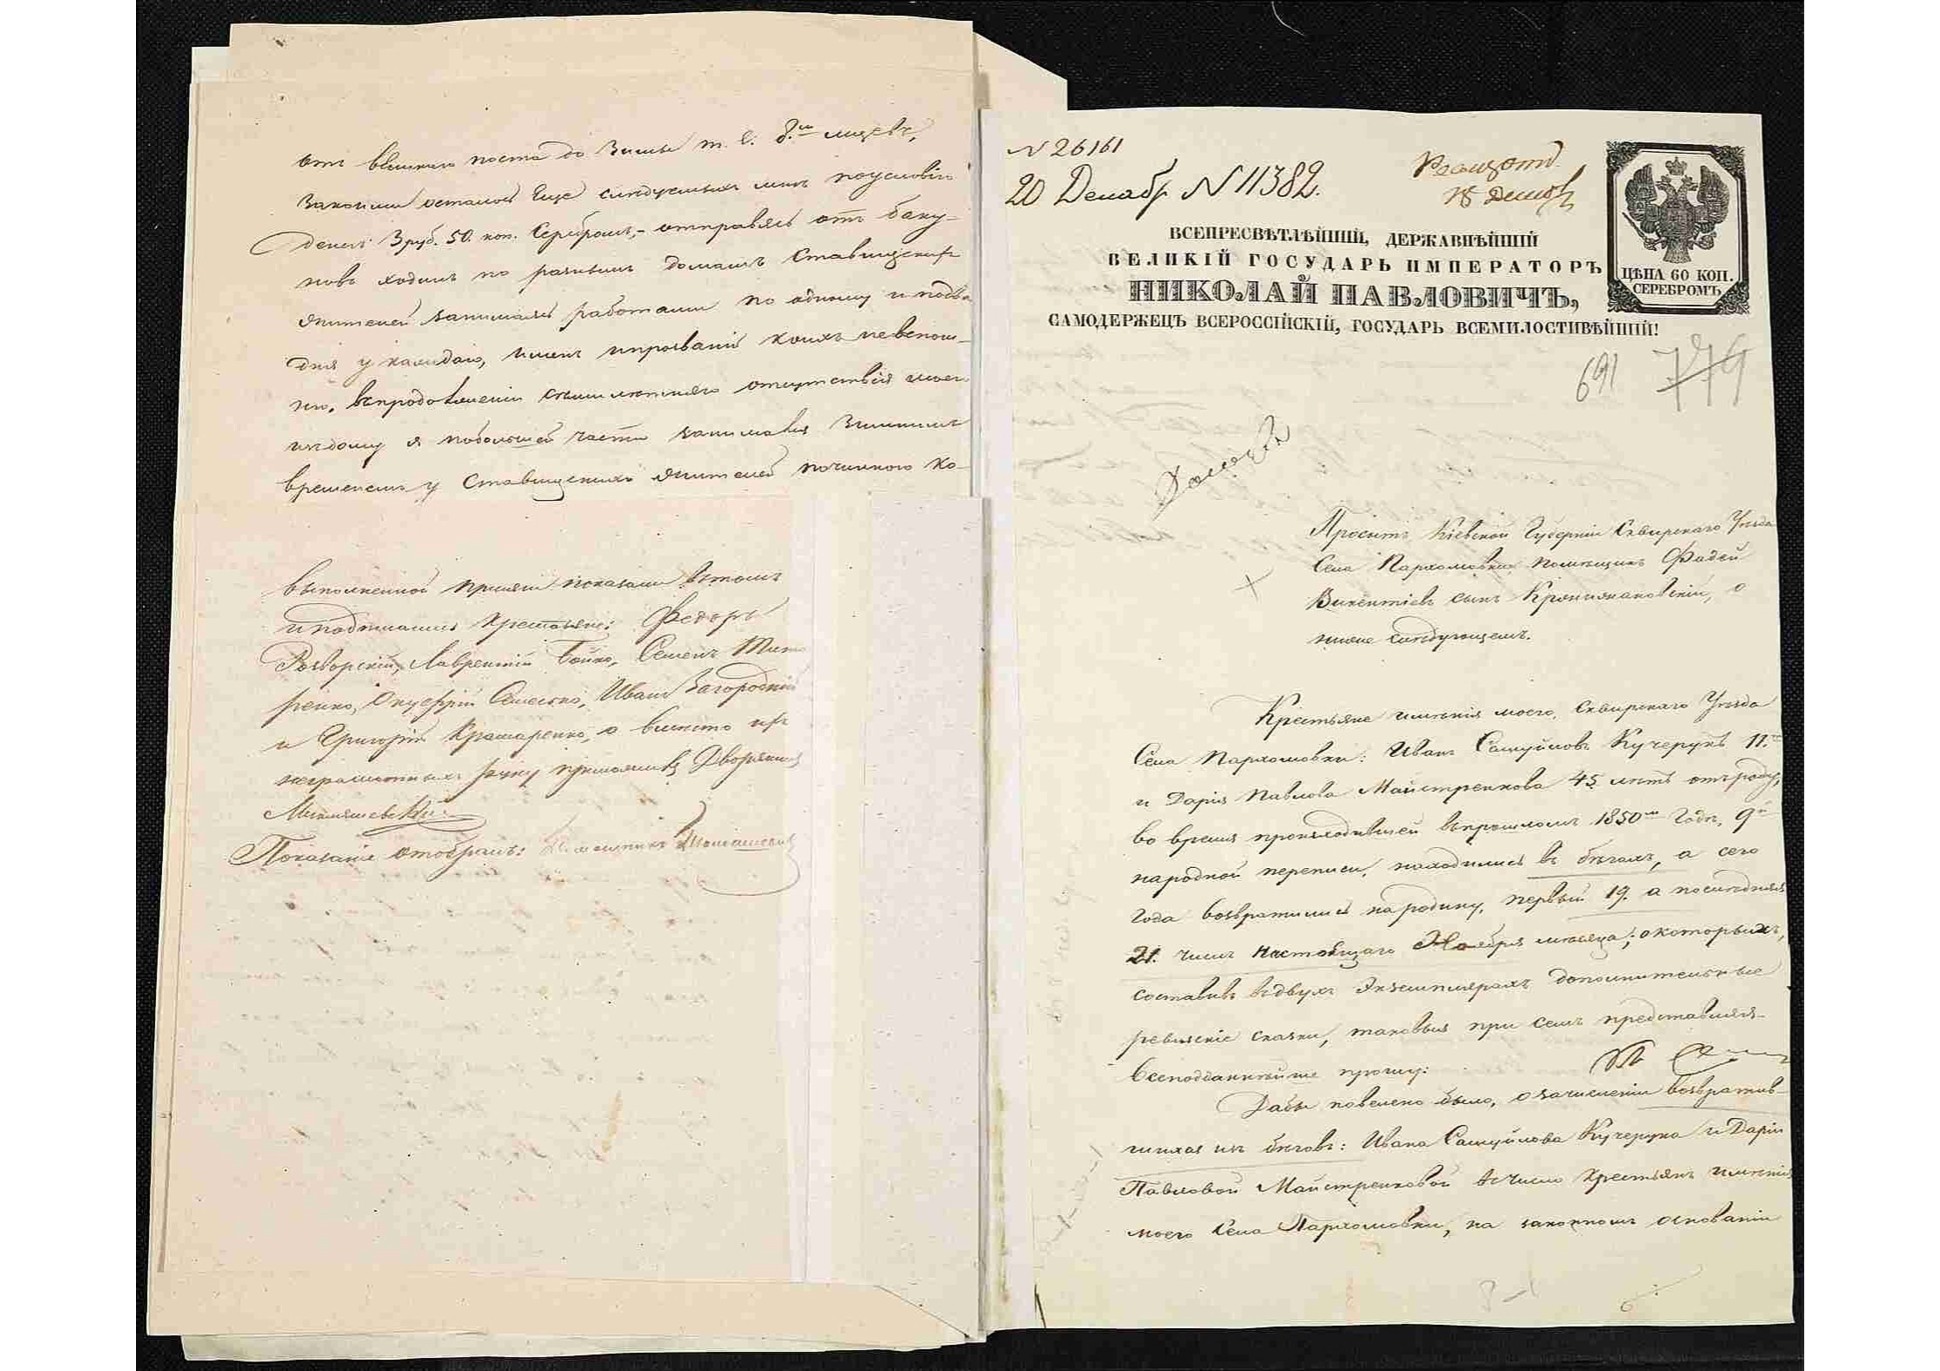 отъ великаго поста до Зимы т. е. 8.ми месяцевъ,
Закоимъ осталось Еще следуемыхъ мне поусловію
денегъ 3 руб. 50. коп. Серебромъ,- отправясь отъ баку-
новъ ходилъ по разнымъ домамъ Ставищскихъ
жителей занимаясь работами по одному и подва
дня у каждаго, именъ ипрозваній коихъ невспом-
ню. впродолженіи отсутствія моего
издому я побольшей части занимался Зимнимъ
временемъ у Ставищскихъ жителей
выполненной показали втомъ
иподписались Крестьяне: Федоръ
Лаврентій Бойко, Семенъ
Онуфрій Иванъ Загородній
и Григорій Крамаренко, а вместо ихъ
неграмотныхъ руку приложилъ Дворянинъ
Показаніе отобралъ:
N 26161
20 Декабр N 11382.
ВСЕПРЕСВѢТЛѢЙШІЙ, ДЕРЖАВНѢЙШІЙ
ВЕЛИКІЙ ГОСУДАРЬ ИМПЕРАТОРЪ
НИКОЛАЙ ПАВЛОВИЧЪ,
САМОДЕРЖЕЦЪ ВСЕРОССІЙСКІЙ, ГОСУДАРЬ ВСЕМИЛОСТИВѢЙШІЙ!
ЦѢНА 60 КОП.
СЕРЕБРОМЪ
691 779
Проситъ Кіевской Губерніи Сквирскаго Уезда
Села Пархомовки помещикъ Фадей
Викентіевъ сынъ о
ниже следующемъ.
Крестьяне именія моего, Сквирскаго Уезда
Села Пархомовки: Иванъ Самуйловъ Кучерукъ 11.
и Дарія Павлова Майстренкова 45 летъ отъ роду,
во время происходившей впрошломъ 1850мъ Годе, 9й
народной переписи, находились въ бегахъ, а сего
года возвратились народину, первый 19. а последняя
21. числъ настоящаго Ноября месяца; окоторыхъ,
составивъ вдвухъ экземплярахъ дополнительные
ревизскіе сказки, таковыя при семъ представляя
Всеподданнейше прошу:
Дабы повелено было, озачисленіи возвратив-
шихся изъ беговъ: Ивана Самуйлова Кучерука и Даріи
Павловой Майстренковой вчисло крестьянъ именія
моего Села Пархомовки, на законномъ основаніи